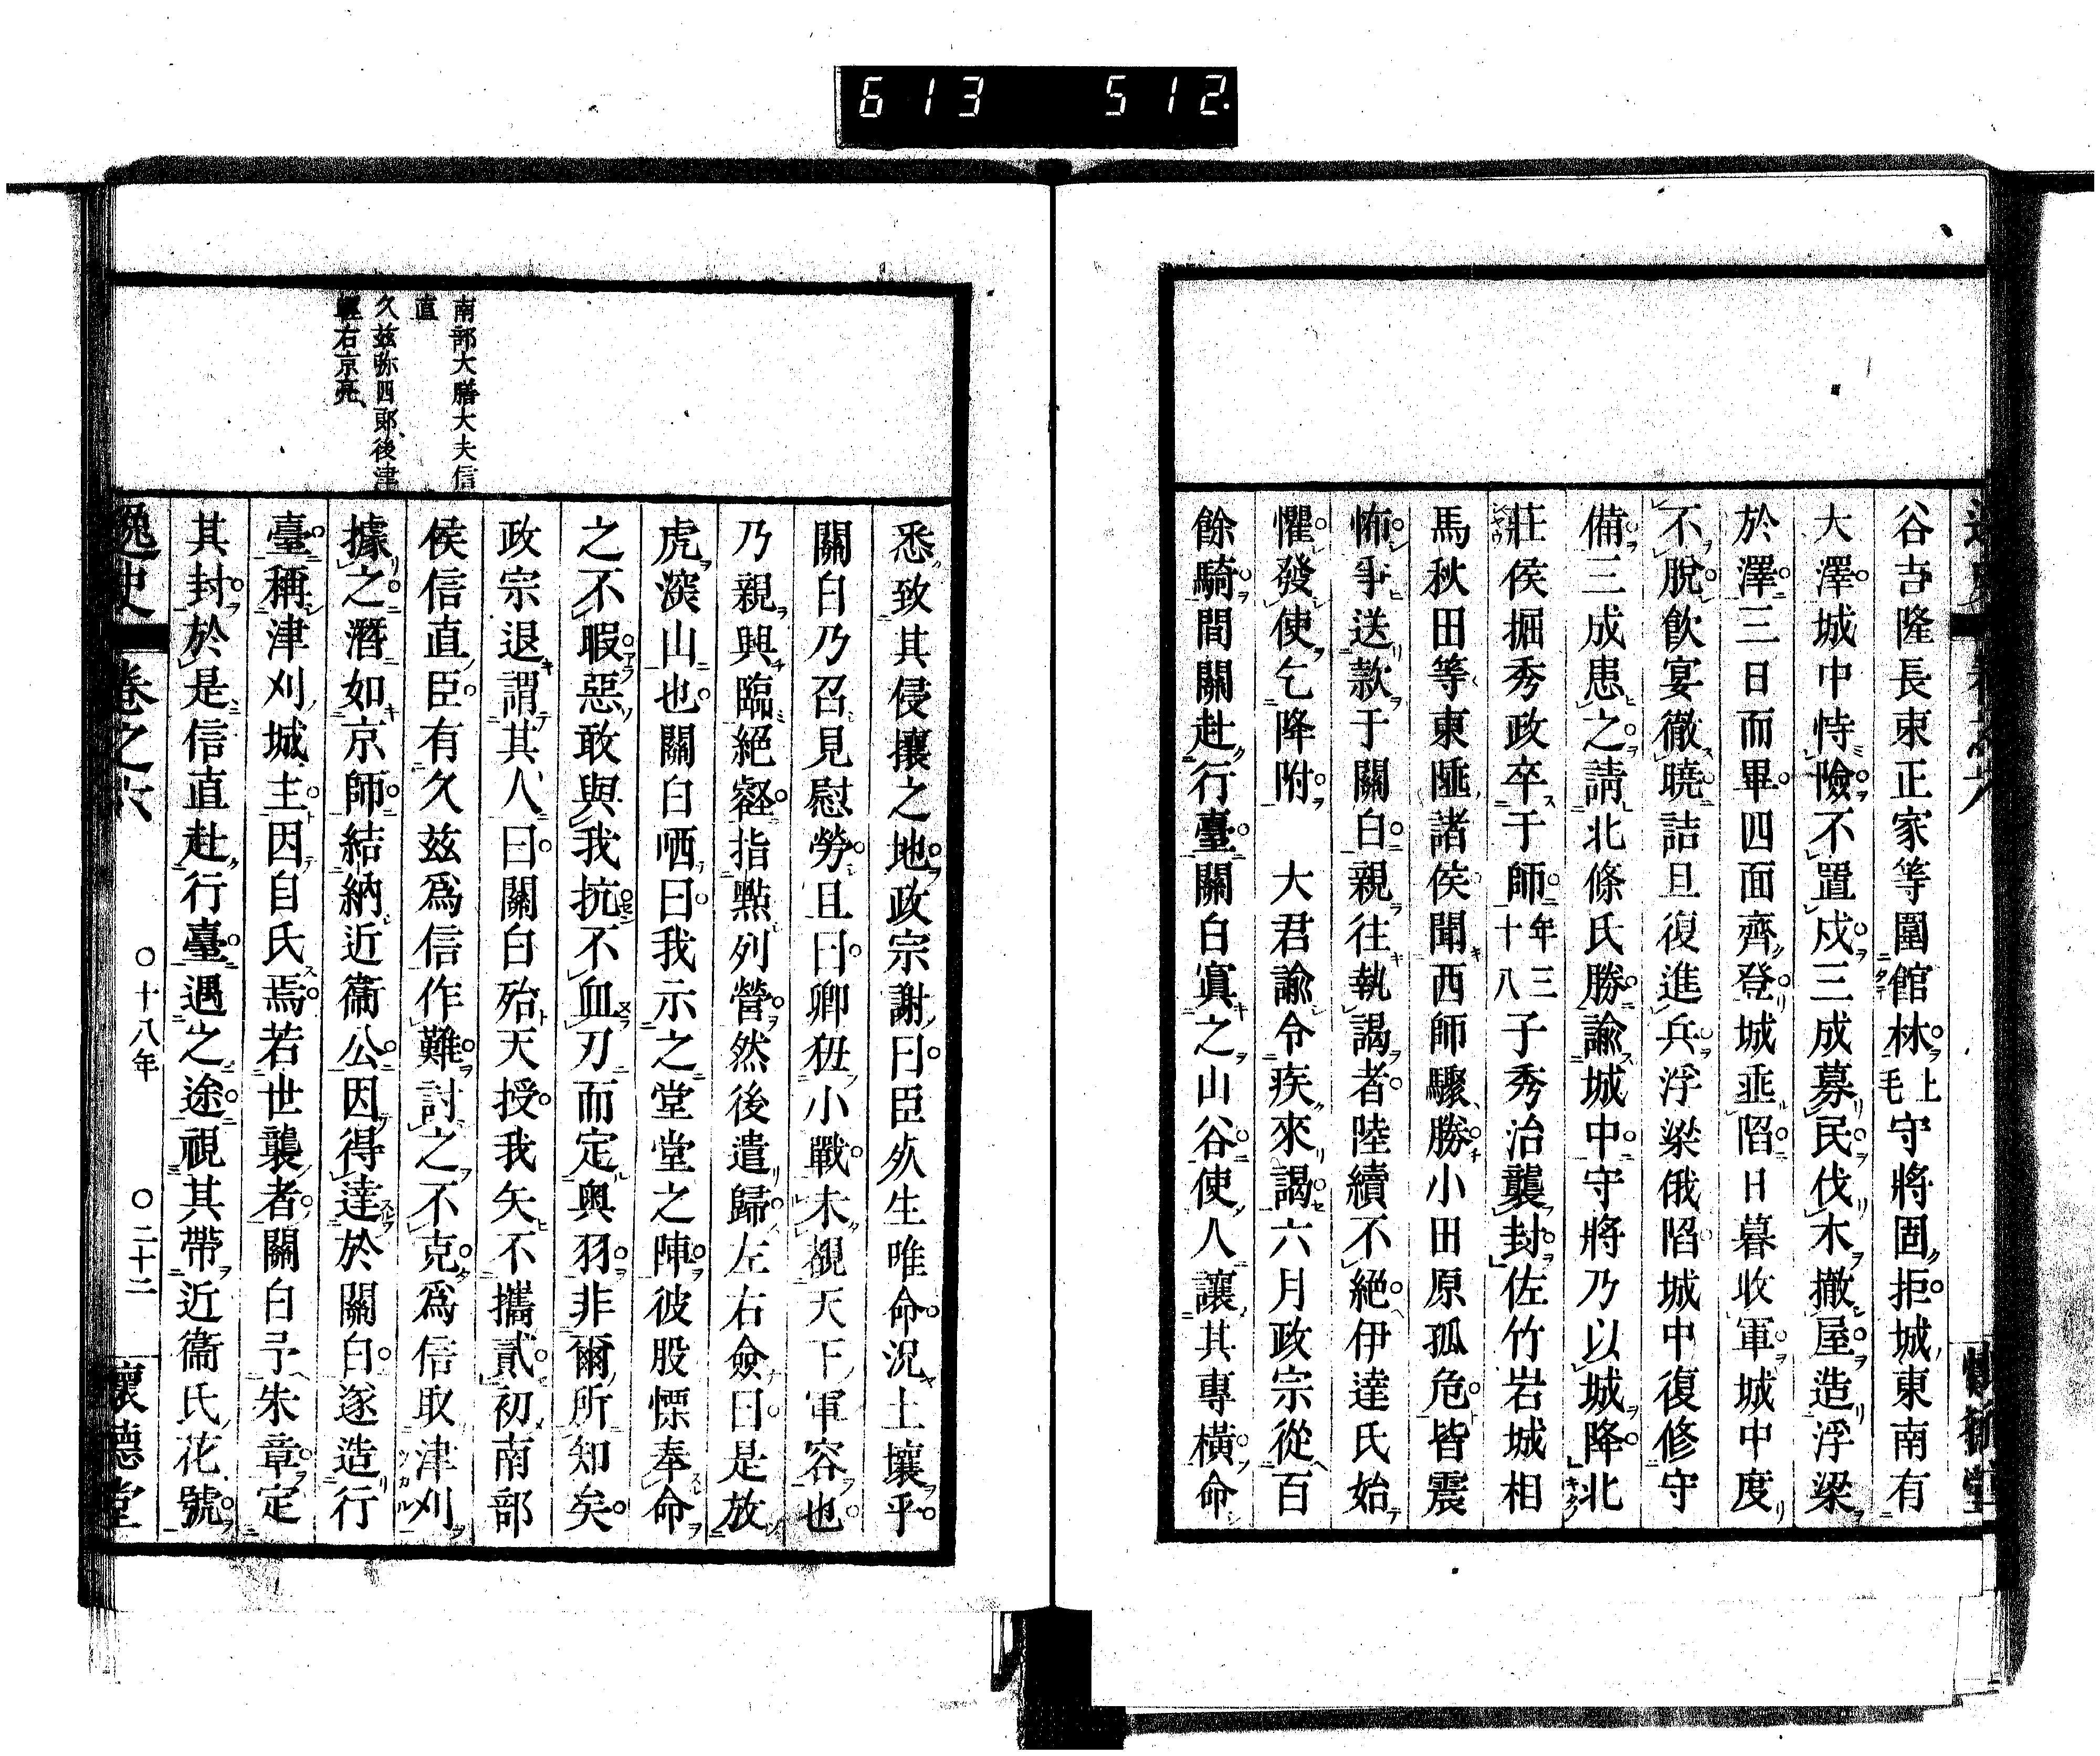 613 512
谷吉隆長束正家等圍館林上毛守將固拒城東南有
大澤城中恃險不置戍三成募民伐木撤屋造浮梁
於澤三日而畢四面齊登城垂陷日暮收軍城中度
不脫飲宴徹曉詰旦復進兵浮梁俄陷城中復修守
備三成患之請北條氏勝諭城中守將乃以城降北
莊侯掘秀政卒于師年三十八子秀治襲封佐竹岩城相
馬秋田等東陲諸侯聞西師驟勝小田原孤危皆震
怖爭送款于關白親往執謁者陸續不絕伊達氏始
懼發使乞降附　大君諭令疾來謁六月政宗從百
餘騎間關赴行臺關白寘之山谷使人讓其專橫命
南部大膳大夫信
直
久兹弥四郎後津
輕右京亮
悉致其侵攘之地政宗謝曰臣死生唯命況土壤乎
關白乃召見慰勞且曰卿狃小戰未覩天下軍容也
乃親興臨絕壑指點列營然後遣歸左右僉曰是放
虎深山也關白哂曰我示之堂堂之陣彼股慄奉命
之不暇惡敢與我抗不血刃而定奧羽非爾所知矣
政宗退謂其人曰關白殆天授我矢不攜貳初南部
侯信直臣有久兹爲信作難討之不克爲信取津刈
據之潛如京師結納近衞公因得達於關白遂造行
臺稱津刈城主因自氏焉若世襲者關白予朱章定
其封於是信直赴行臺遇之途視其帶近衞氏花號
逸史 卷之六 ○十八年 ○二十二 懷德堂